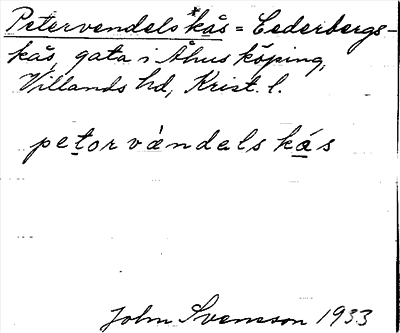 Petervendels*kås = Cederbergs-
kås, gata i Åhus köping,
Villands hd, Krist. l.
petorvàndalskás
John Svensson 1933